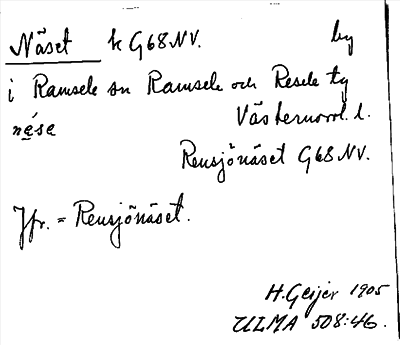 Näset k G68NV. by
i Ramsele sn Ramsele och Resele tg
nése Västernorrl. l.
Rensjönäset G68NV.
Jfr. = Rensjönäset.
H. Geijer 1905
ULMA 508:46.